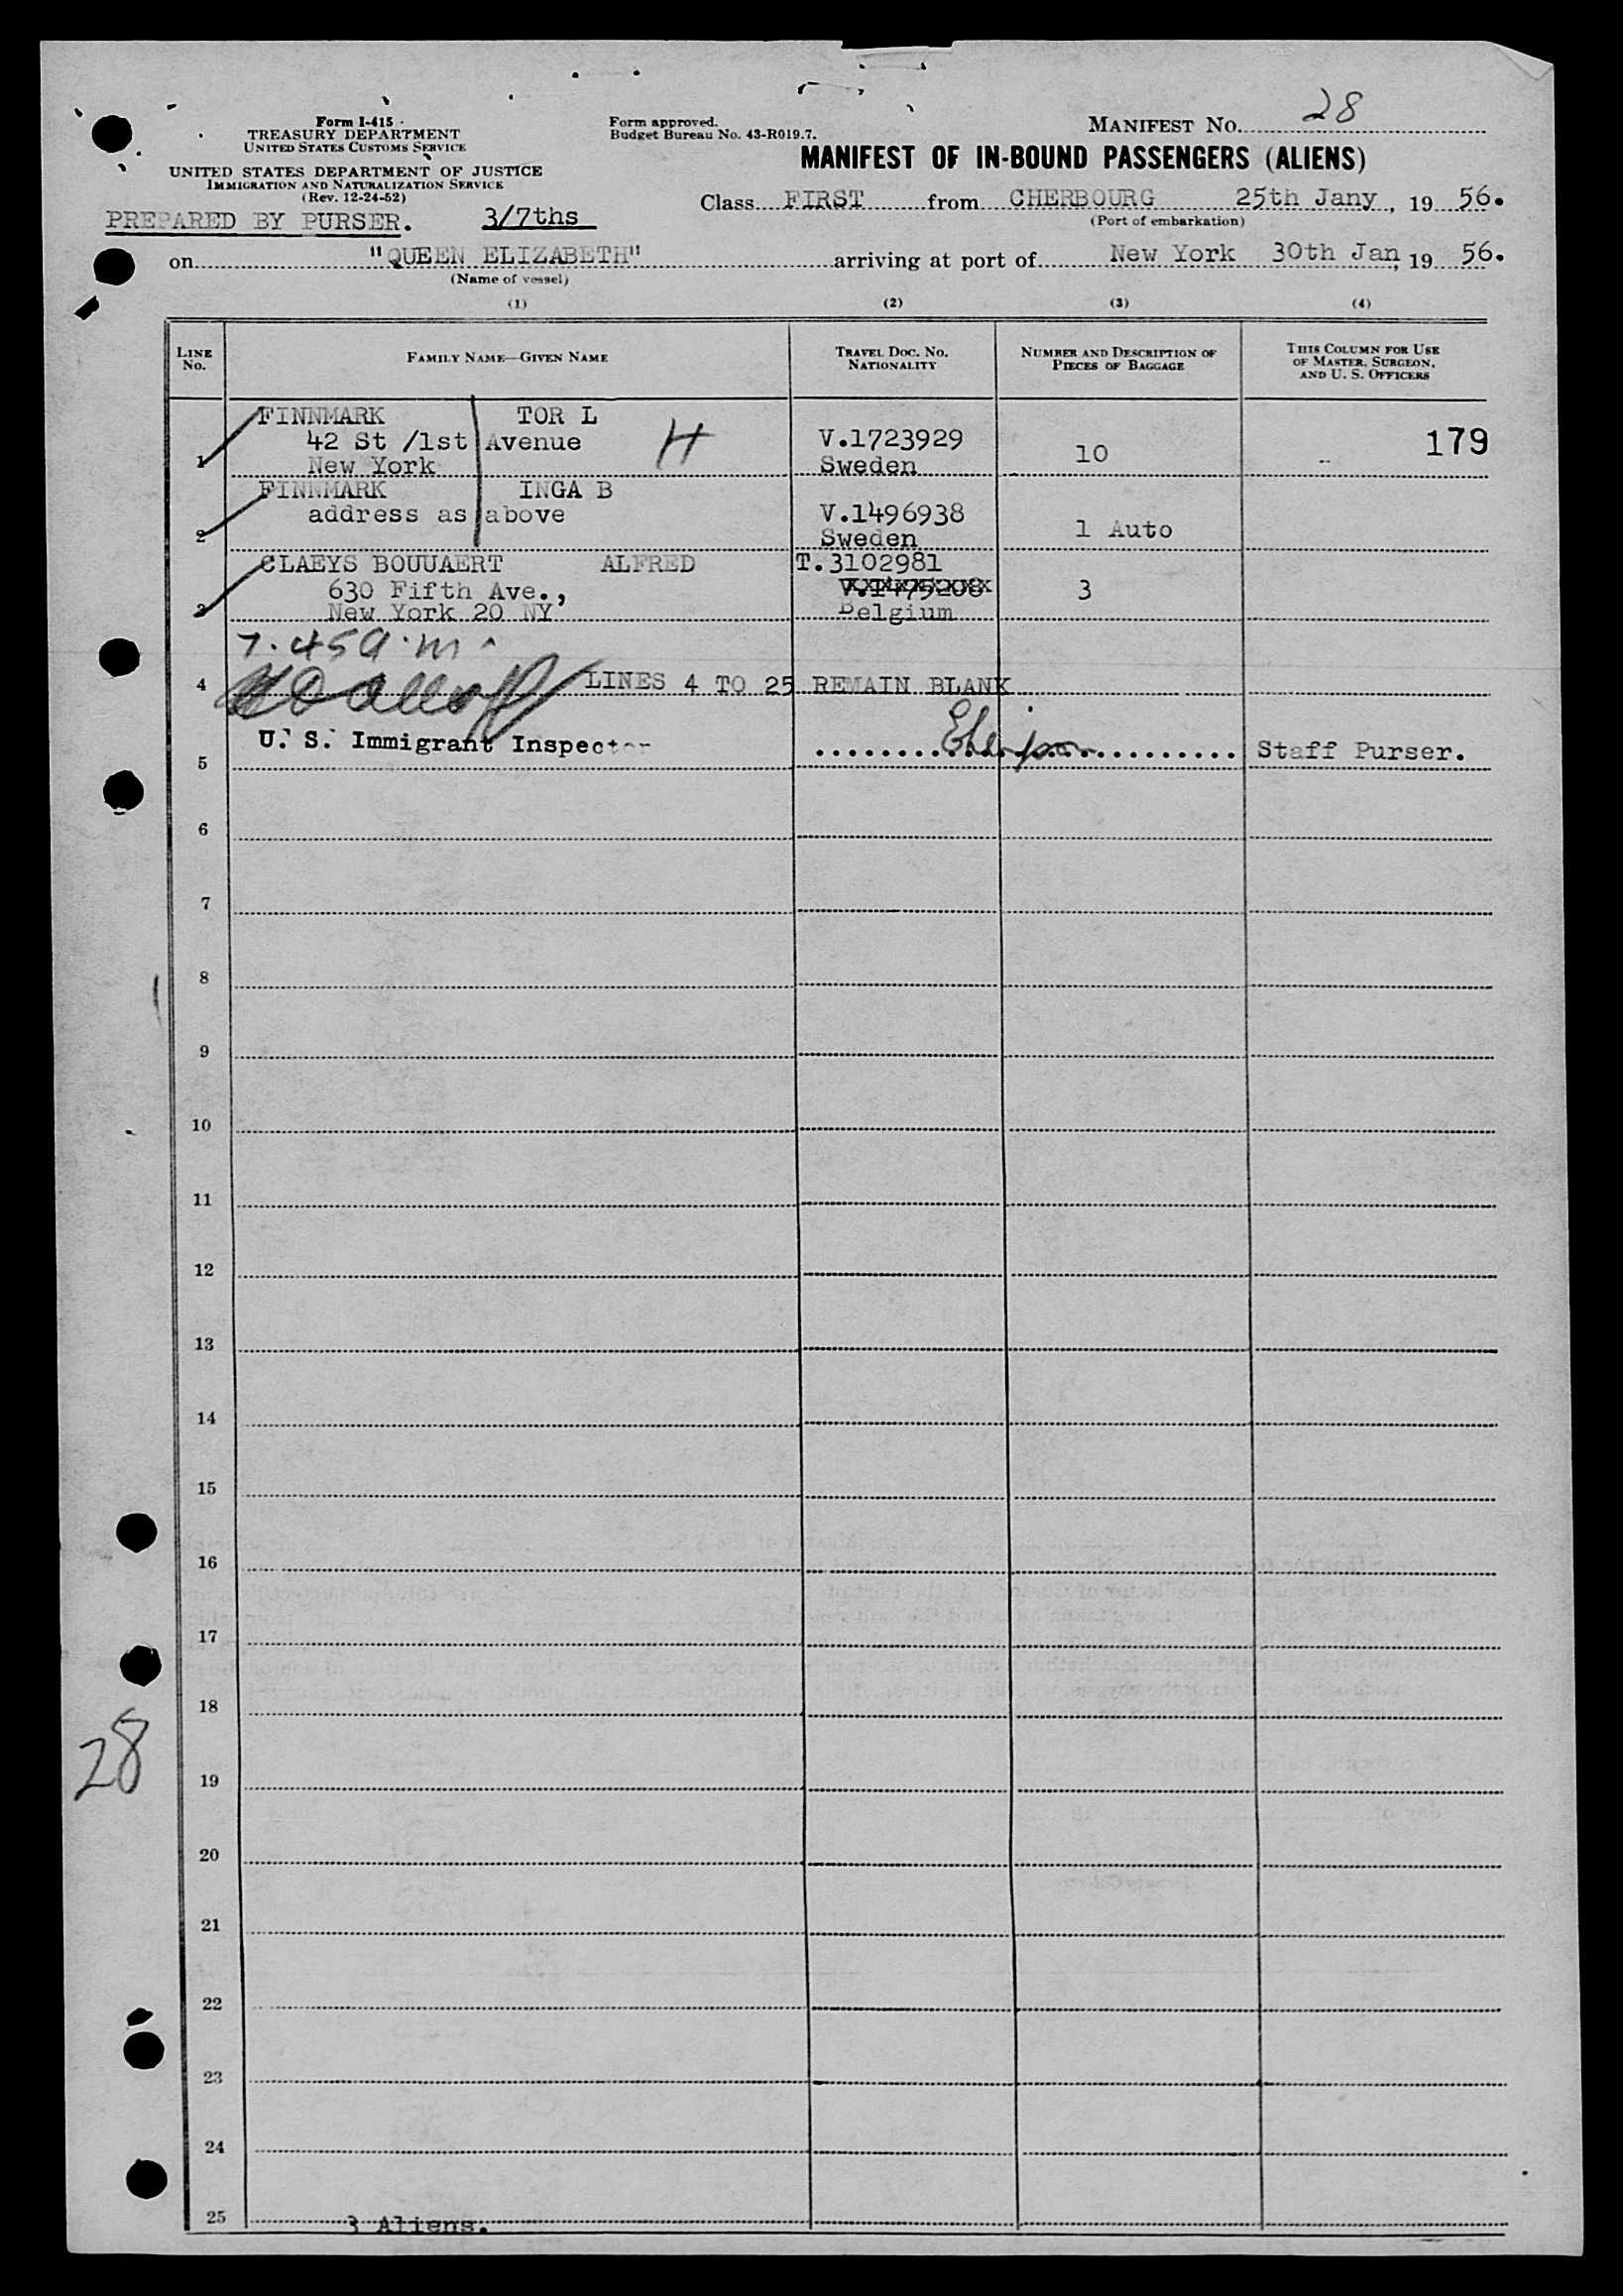 Form I-415
TREASURY DEPARTMENT
UNITED STATES CUSTOMS SERVICE
UNITED STATES DEPARTMENT OF JUSTICE
IMMIGRATION AND NATURALIZATION SERVICE
(Rev. 12-24-52)
PREPARED BY PURSER. 3/7ths
Form approved.
Budget Bureau No. 43-R019.7.
MANIFEST NO. 28
MANIFEST OF IN-BOUND PASSENGERS (ALIENS)
Class FIRST from CHERBOURG 25th Jany, 19 56.
(Port of embarkation)
on "QUEEN ELIZABETH" arriving at port of New York 30th Jan, 19 56.
(Name of vessel)
(1) (2) (3) (4)
LINE No. FAMILY NAME—GIVEN NAME TRAVEL DOC. NO. NATIONALITY NUMBER AND DESCRIPTION OF PIECES OF BAGGAGE THIS COLUMN FOR USE OF MASTER, SURGEON, AND U. S. OFFICERS
FINNMARK TOR L
42 St /1st Avenue H V.1723929 10 179
1 New York Sweden
FINNMARK INGA B
address as above V.1496938 1 Auto
2 Sweden
CLAEYS BOUUAERT ALFRED T.3102981
630 Fifth Ave., V.1475208 3
3 New York 20 NY Belgium
7.45a.m.
4 LINES 4 TO 25 REMAIN BLANK
U. S. Immigrant Inspector Staff Purser.
5
6
7
8
9
10
11
12
13
14
15
16
17
18
28
19
20
21
22
23
24
25 3 Aliens.